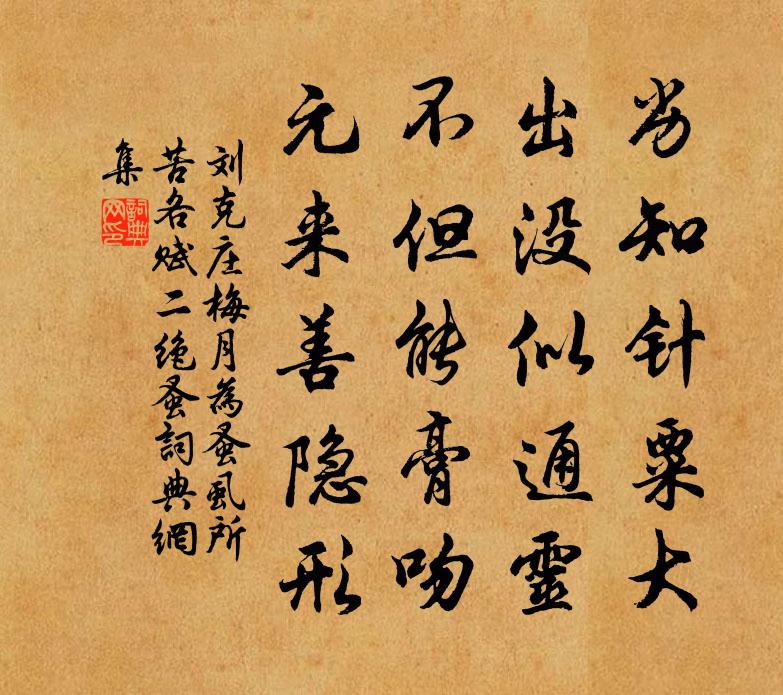 劣知针粟大
出没似通靈
不但能膏吻
元来善隐形
刘克庄梅月為蚤虱所
苦各赋二绝蚤詞典網
集
詞典网印